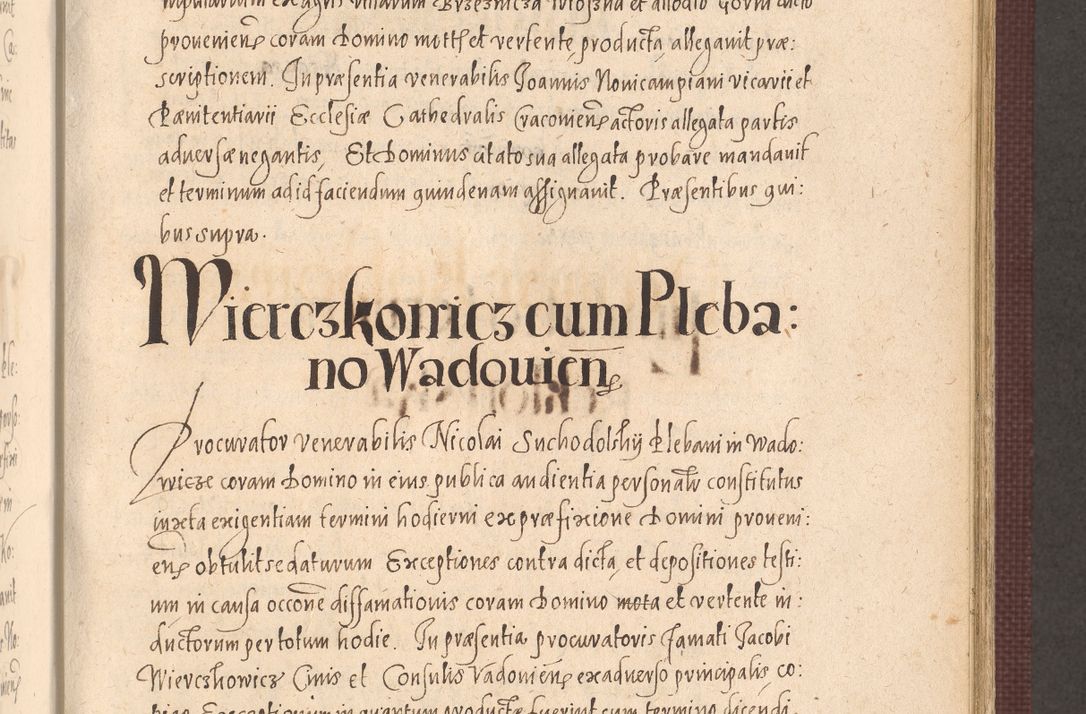 proueniens coram Domino mott. et vertente, producta, alleganit præ:
scriptionem. In præsentia venerabilis Joannis Novicampiani vicarii et
Pænitentiarii Ecclesiæ Cathedralis Cracoviens actoris allegata partis
adversæ negantis, Et Dominus citato sua allegata probare mandavit
et terminum ad id faciendum quindenam assignavit. Præsentibus qui:
bus supra.
Wierczkowicz cum Pleba:
no Wadouien̄
Procurator venerabilis Nicolai Suchodolskij Plebani in Wado:
wicze coram Domino in eius publica audientia personalr constitutus
iuxta exigentiam termini hodierni ex præfixione Domini proveni:
en obtulit se daturum Exceptiones contra dicta, et depositiones testi:
um in causa occone diffamationis coram Domino mota et vertente in:
ductorum per totum hodie. In præsentia procuratoris famati Jacobi
Wierczkowicz Civis et Consulis Vadovien ex adverso principalis, co: